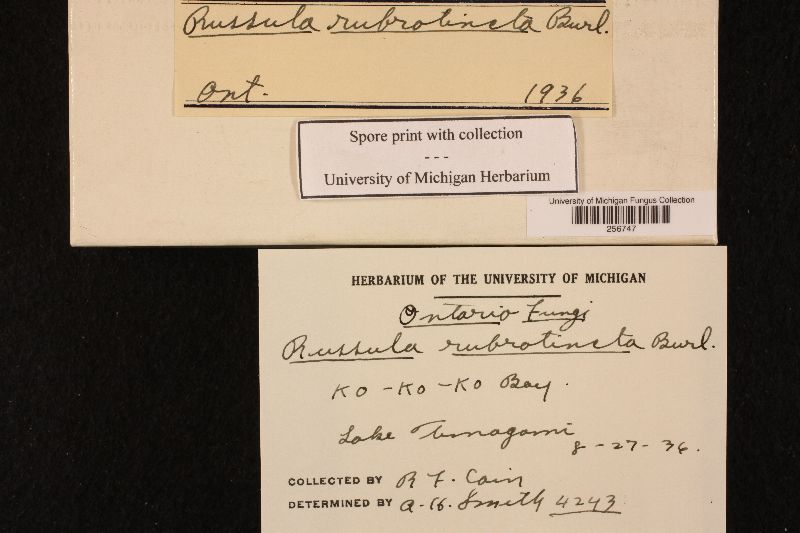 Russula rubrotincta Burl.
Ont. 1936
Spore print with collection
---
University of Michigan Herbarium
University of Michigan Fungus Collection
256747
HERBARIUM OF THE UNIVERSITY OF MICHIGAN
Ontario Fungi
Russula rubrotincta Burl.
Ko-Ko-Ko Bay.
Lake Timagami
8-27-36.
COLLECTED BY R F. Cain
DETERMINED BY A.H. Smith 4243